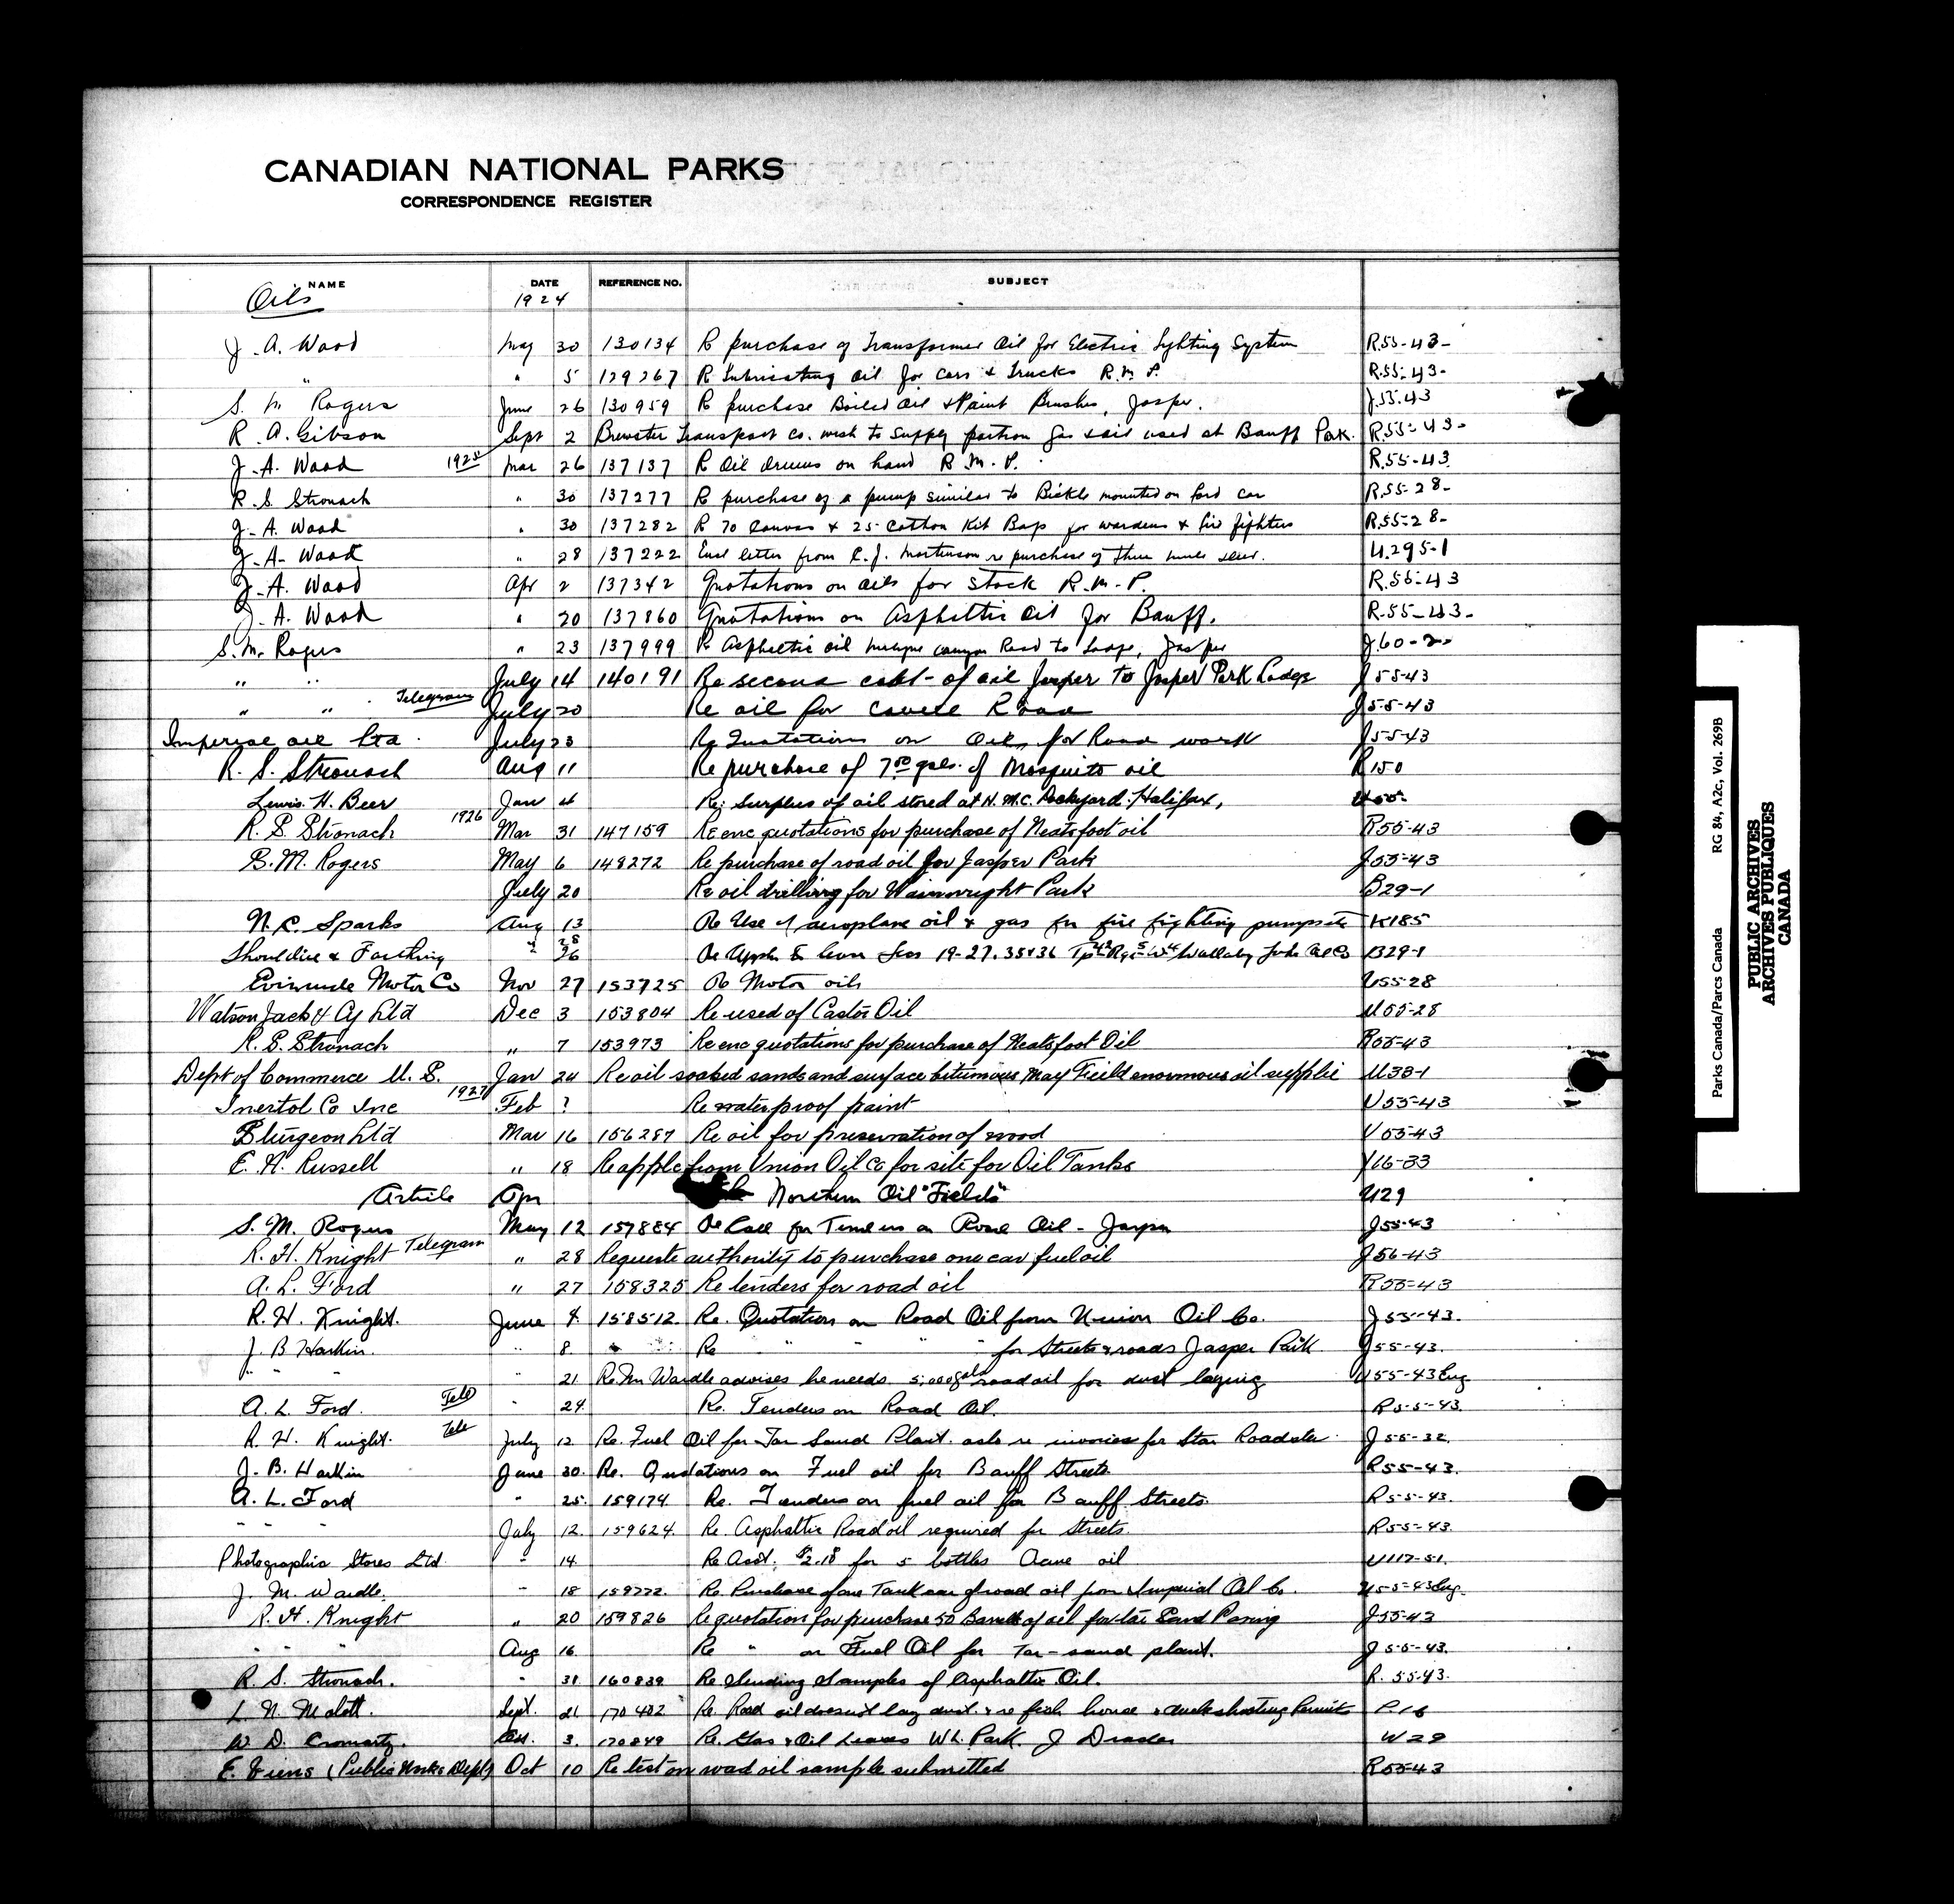 CANADIAN NATIONAL PARKS
CORRESPONDENCE REGISTER
NAME DATE REFERENCE NO. SUBJECT
Oils 1924
J. A. Wood May 30 130134 Re purchase of Transformer Oil for Electric Lighting System R.55-43-
" " 5 129267 Re Lubricating oil for cars & Trucks R.M.P. R.55-43-
S. M Rogers June 26 130959 Re purchase Boiled Oil & Paint Brushes, Jasper. J.55.43
R. A. Gibson Sept 2 Brewster Transport Co. wish to supply portion gas & oil used at Banff Park. R.55-43-
J. A. Wood 1925 Mar 26 137137 Re Oil drums on hand R.M.P. R.55-43
R. S. Stronach " 30 137277 Re purchase of a pump similar to Bickle mounted on ford car R.55-28-
J. A. Wood " 30 137282 Re 70 Canvas & 25 Cotton Kit Bags for wardens & fire fighters R.55-28-
J. A. Wood " 28 137222 Encl letter from C. J. Martinson re purchase of three U.295-1
J. A. Wood Apr 2 137342 Quotations on oils for stock R.M.P. R.56-43
J. A. Wood " 20 137860 Quotations on Asphaltic oil for Banff. R-55-43-
S. M. Rogers " 23 137999 Re Asphaltic oil Maligne Canyon Road to Lodge, Jasper J.60-2-
" " July 14 140191 Re second cost of oil Jasper to Jasper Park Lodge J55-43
" " Telegram July 20 Re oil for Cavell Road J55-43
Imperial Oil Ltd. July 23 Re Quotations on Oil, for Road work J55-43
R. S. Stronach Aug 11 Re purchase of 700 gals. of Mosquito oil R150
Lewis H. Beer Jan 4 Re: Surplus of oil stored at H.M.C. Dockyard. Halifax, U55-
R. S. Stronach 1926 Mar 31 147159 Re enc quotations for purchase of Neatsfoot oil R55-43
S. M. Rogers May 6 148272 Re purchase of road oil for Jasper Park J55-43
July 20 Re oil drilling for Wainwright Park B29-1
N. C. Sparks Aug 13 Re Use of aeroplane oil & gas for fire fighting pumps etc K185
Shouldice & Farthing " 28 26 Re Appln to lease Secs 19-27. 35&36 Tp 43 Rge 5 W4 B29-1
Evinrude Motor Co Nov 27 153725 Re Motor oils U55-28
Watson Jack & Cy Ltd Dec 3 153804 Re used of Castor Oil U55-28
R. S. Stronach " 7 153973 Re enc quotations for purchase of Neatsfoot Oil R55-43
Dept of Commerce U. S. Jan 24 Re oil soaked sands and surface bitumous may Field enormous oil supplie U38-1
1927
Inertol Co Inc Feb ? Re waterproof paint U55-43
Sturgeon Ltd Mar 16 156287 Re oil for preservation of wood U55-43
E. H. Russell " 18 Re appln from Union Oil Co for site for Oil Tanks Y16-33
Article Apr Northern Oil "Fields" U29
S. M. Rogers May 12 157884 Re Call for Tenders on Road Oil - Jasper J55-43
R. H. Knight Telegram " 28 Requests authority to purchase one car fuel oil J56-43
A. L. Ford " 27 158325 Re tenders for road oil R55-43
R. H. Knight. June 4. 158512. Re. Quotation on Road Oil from Union Oil Co. J55-43.
J. B Harkin. " 8. Re " " " " for Streets & roads Jasper Park J55-43.
" " " " 21 Re. Mr Wardle advises he needs 5,000 gals road oil for dust laying U55-43 Eng
A. L. Ford. Tele " 24. Re. Tenders on Road Oil. R55-43.
R. H. Knight. Tele July 12. Re. Fuel Oil for Tar Sand Plant. asks re invoices for Star Roadster. J55-32.
J. B. Harkin June 30. Re. Quotations on Fuel oil for Banff Streets. R55-43.
A. L. Ford " 25. 159174. Re. Tenders on fuel oil for Banff Streets. R55-43.
" " " July 12. 159624. Re. Asphaltic Road oil required for Streets. R55-43.
Photographic Stores Ltd. " 14. Re Acct. $2.18 for 5 bottles Acme oil U117-51.
J. M. Wardle. " 18 159772. Re Purchase of one Tank car of road oil from Imperial Oil Co. U55-43 Eng.
R. H. Knight " 20 159826 Re quotation for purchase 50 Barrels of oil for tar Sand Paving J55-43
" " " Aug 16. Re " on Fuel Oil for Tar-sand plant. J55-43.
R. S. Stronach. " 31 160839 Re Sending Samples of Asphaltic Oil. R. 55-43.
L. N. Malott. Sept. 21 170402 Re. Road oil doesn't lay dust. & re fish house & duck shooting Permits P.16
W. D. Cromarty. Oct. 3. 170849 Re. Gas & Oil Leases WL. Park. J W29
E. Viens (Public Works Dept) Oct 10 Re test on road oil sample submitted R55-43
Parks Canada/Parcs Canada RG 84, A2c, Vol. 269B
PUBLIC ARCHIVES
ARCHIVES PUBLIQUES
CANADA